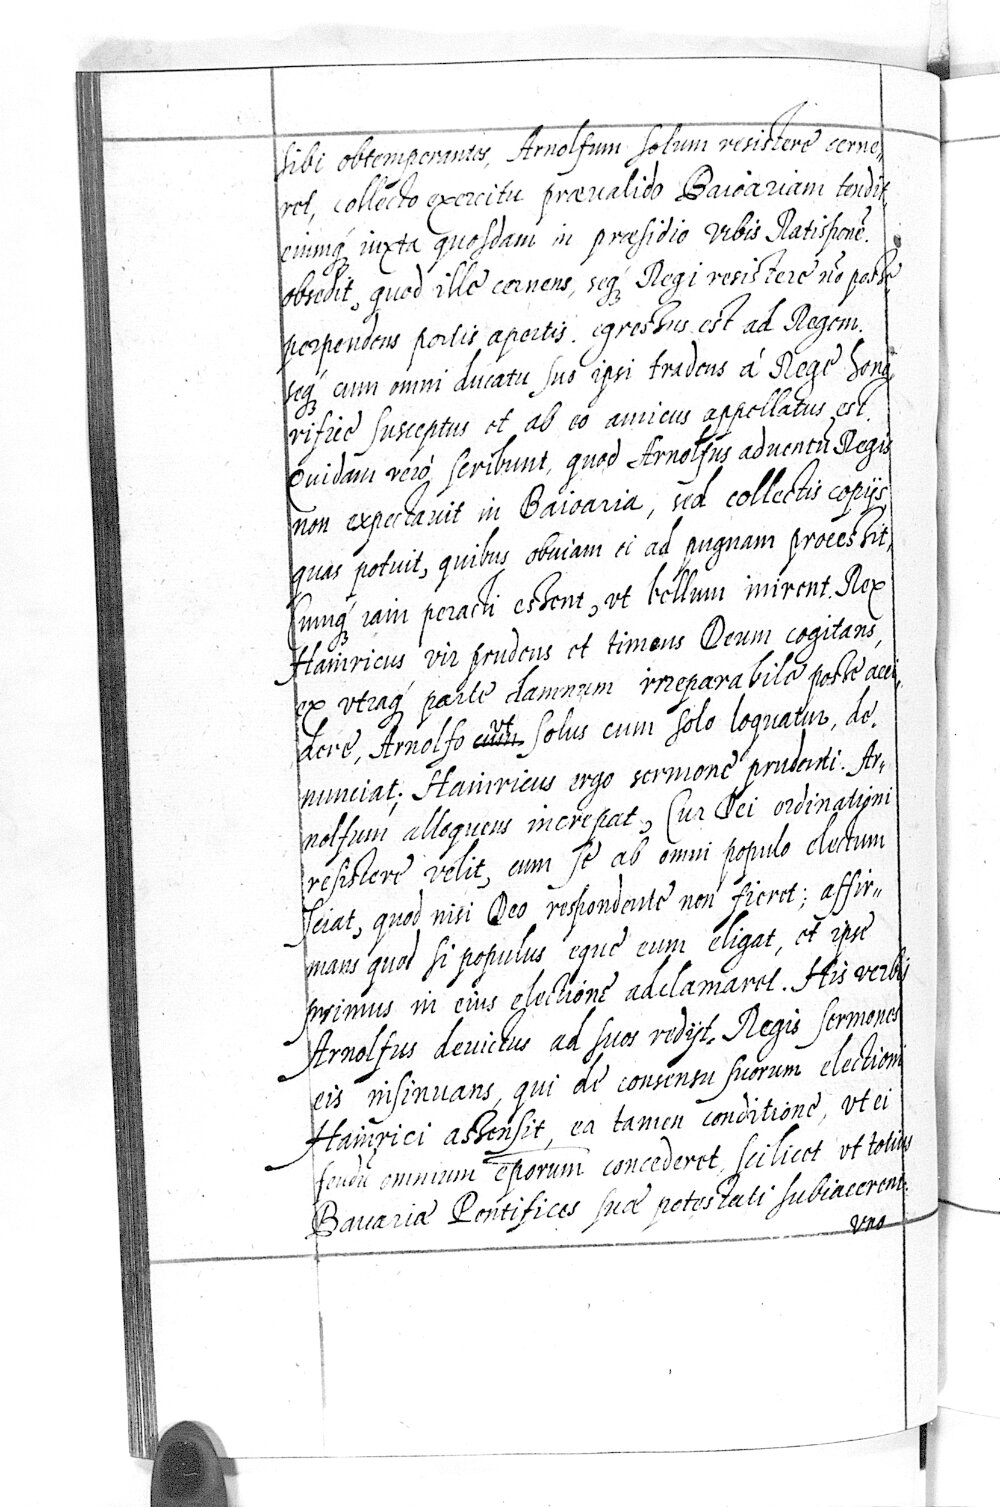 sibi obtemperantes, Arnolfum solum resistere cerne„
ret, collecto exercitu præualido Baioariam tendit,
eiumq́ iuxta quosdam in præsidio Vrbis Ratisponę.
obsedit, quod ille cernens, seq́ Regi resistere nō posse,
perpendens portis apertis. egressus est ad Regem.
seq́ cum omni ducatu suo ipsi tradens á Rege hono„
rificè susceptus et ab eo amicus appellatus est.
Quidam veró scribunt, quod Arnolfus aduentū Regis
non expectauit in Baioaria, sed collectis copijs,
quas potuit, quibus obuiam ei ad pugnam processit,
Cumq́ iam peracti essent, vt bellum inirent. Rex
Hainricus vir prudens et timens Deum cogitans,
ex vtraq́ parte damnum irreparabile posse acci„
dere, Arnolfo cum vt solus cum solo loquatur, de„
nunciat; Hainricus ergo sermone prudenti. Ar„
nolfum alloquens increpat, Cur Dei ordinationi
resistere velit, cum se ab omni populo electum
sciat, quod nisi Deo respondente non fieret; affir„
mans quod si populus eque eum eligat, et ipse
primus in eius electione adclamaret. His verbis
Arnolfus deuictus ad suos redijt. Regis sermones
eis insinuans, qui de consensu suorum electioni
Hainrici assensit, ea tamen conditione, vt ei
feudū omnium eporum concederet, scilicet vt totius
Bauariæ Pontifices suæ potestati subiacerent.
vno